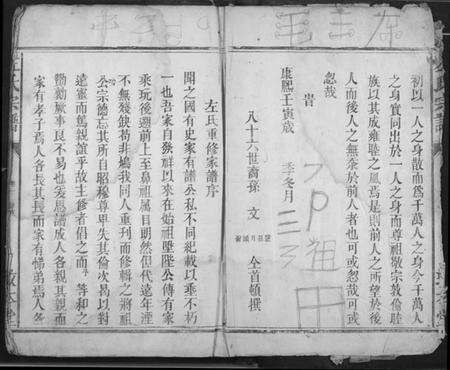 初以一人之身散而為千萬人之身今千萬人
之身實同出於一人之身而尊祖敬宗敦倫睦
族以其成雍睦之風焉是則前人之所望於後
人而後人之無忝於前人者也可忽哉可或
忽哉
康熙壬寅歲 季冬月
八十六世裔孫 文 仝首頓撰
左氏重修家譜序
聞之國有史家有譜公私不同紀載以垂不朽
一也吾家自發祥以來在始祖 公傳有家
乘玩後邇前上至鼻祖屬目朗然但代遠年湮
不無殘缺苟非鳩我同人重刊而修輯之將祖
公宗德忘其所自昭穆尊卑失其倫次曷以對
遠 而篤親誼乎故主修者倡之而 等和之
勷勷厥事良不易也爰思譜成人各親其親而
家有孝子焉人各長其長而家有悌弟焉人各
氏宗譜
毛主席